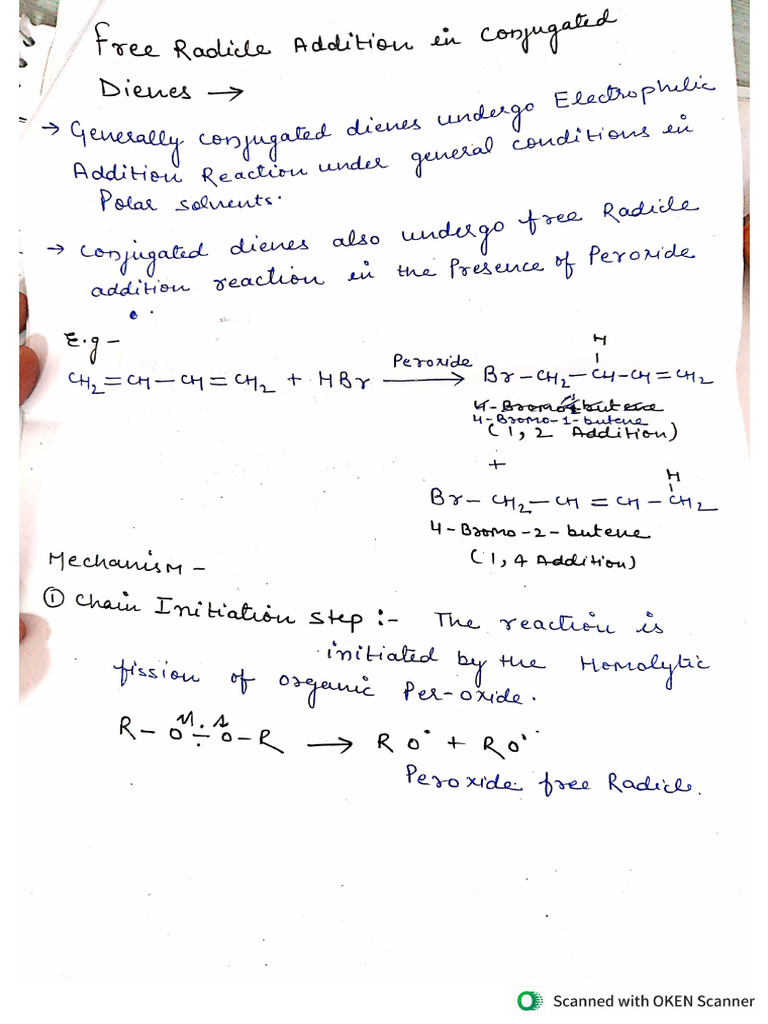 Free Radicle Addition in Conjugated
Dienes →
→ Generally conjugated dienes undergo Electrophilic
Addition Reaction under general conditions in
Polar solvents.
→ Conjugated dienes also undergo free Radicle
addition reaction in the Presence of Peroxide
E.g –
H
CH2=CH–CH=CH2 + HBr Peroxide → Br–CH2–CH–CH=CH2
4-Bromo-1-butene
4-Bromo-1-butene
(1,2 Addition)
+
H
Br–CH2–CH=CH–CH2
4-Bromo-2-butene
(1,4 Addition)
Mechanism –
① Chain Initiation Step :- The reaction is
initiated by the Homolytic
fission of organic Per-oxide.
R–O÷O–R → RO• + RO•
Peroxide free Radicle.
Scanned with OKEN Scanner